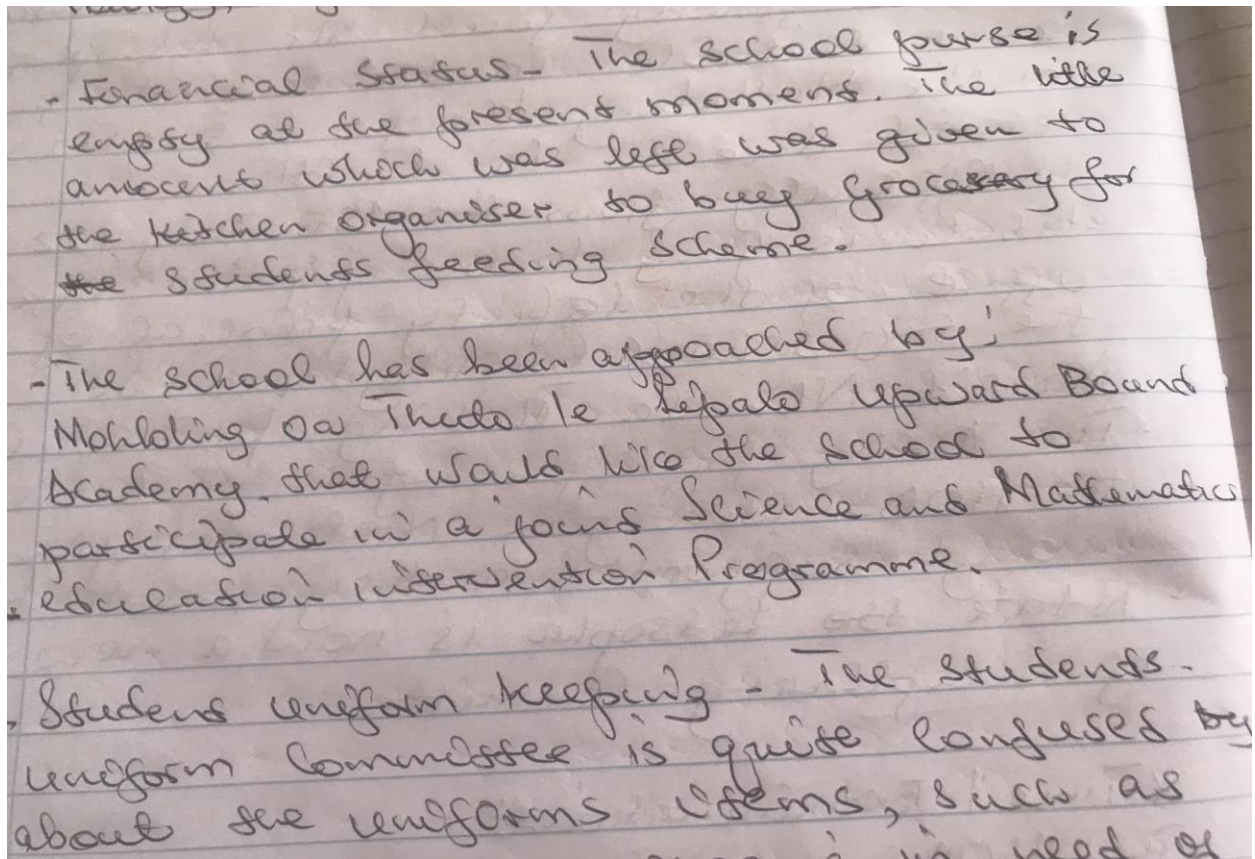 - Financial Status - The school purse is
empty at the present moment. The little
amount which was left was given to
the kitchen organiser to buy grocery for
the students feeding scheme.
- The school has been approached by:
Mohloling oa Thuto le Lefalo upward Bound
Academy. that would like the school to
participate in a joint Science and Mathematics
education intervention Programme.
. Student uniform keeping - The students.
uniform Committee is quite confused by
about the uniforms items, such as
in need of